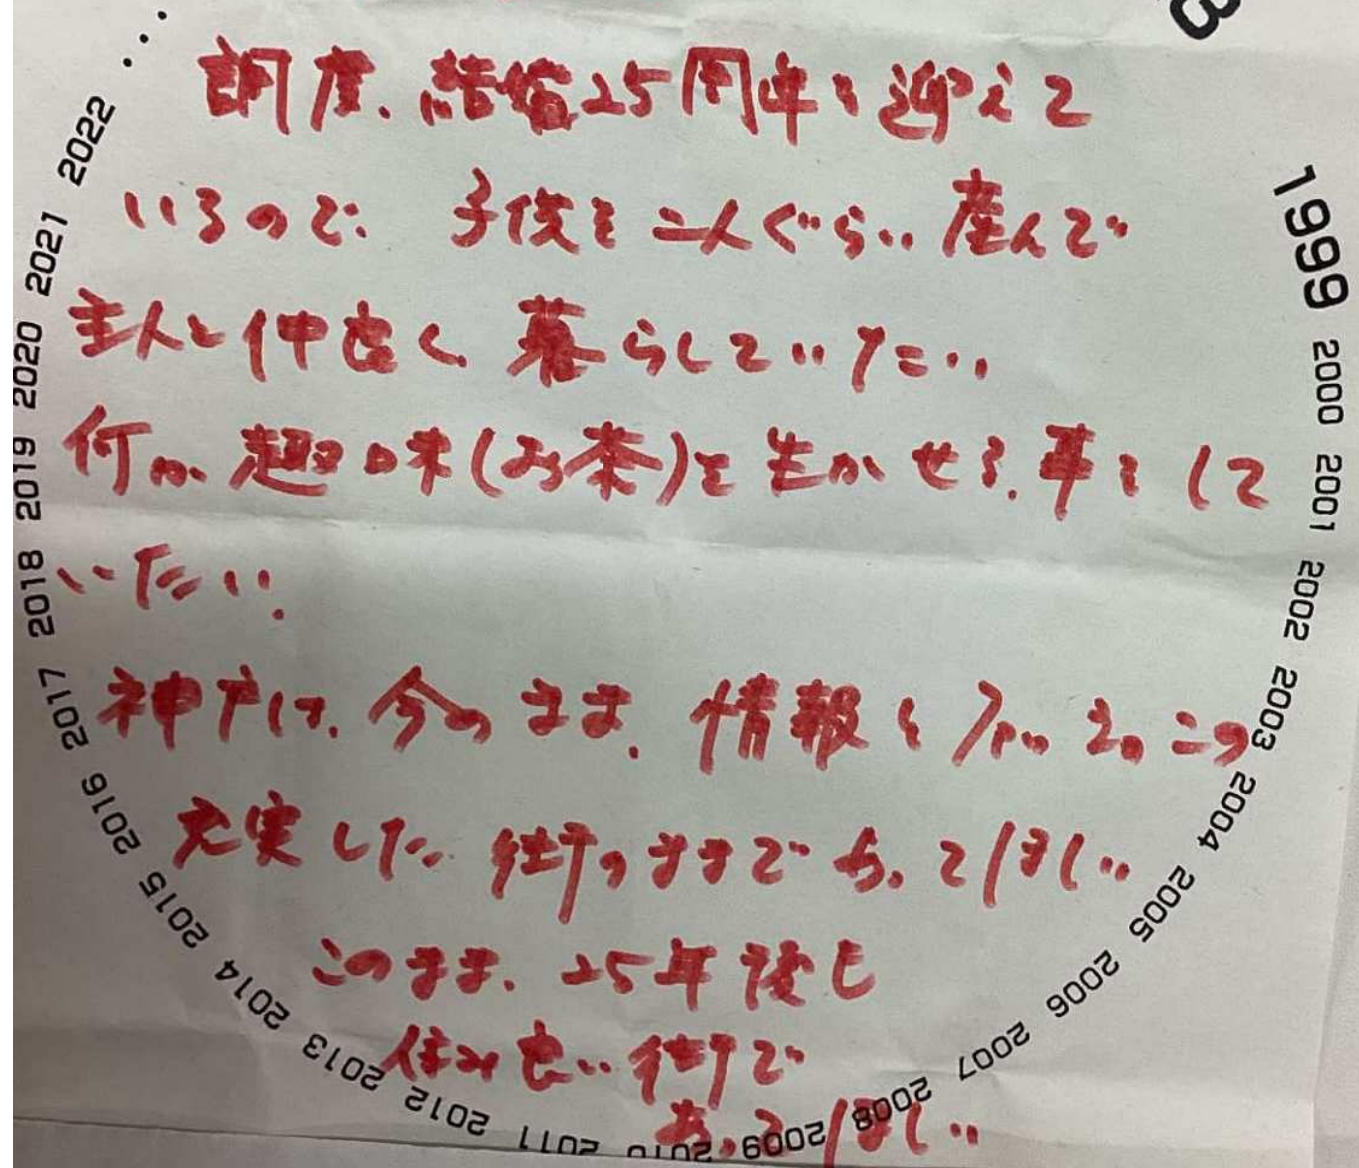 調度、結婚25周年を迎えて
いるので、子供を二人ぐらい産んで
主人と仲良く暮らしていたい
何か趣味(お茶)を生かせる、事をして
いたい.
神戸は、今のまま、情報も
充実した 街のままであってほしい
このまま、25年後も
住み良い街で
あってほしい
3
1999 2000 2001 2002 2003 2004 2005 2006 2007 2008 2009 2010 2011 2012 2013 2014 2015 2016 2017 2018 2019 2020 2021 2022 ...